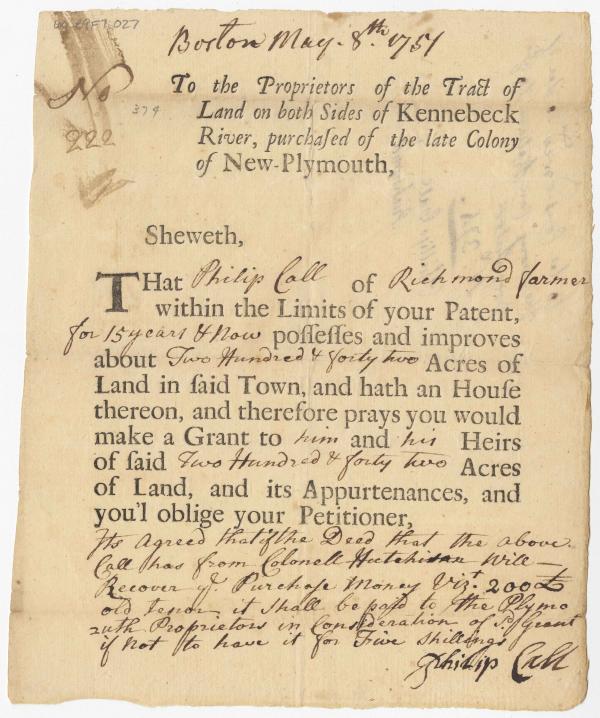 Boston May. 8.th 1751
No
222
374
To the Proprietors of the Tract of
Land on both Sides of Kennebeck
River, purchaſed of the late Colony
of New-Plymouth,
Sheweth,
THat Philip Call of Richmond farmer
within the Limits of your Patent,
for 15 years & Now poſſeſſes and improves
about Two Hundred & forty two Acres of
Land in ſaid Town, and hath an Houſe
thereon, and therefore prays you would
make a Grant to him and his Heirs
of ſaid Two Hundred & forty two Acres
of Land, and its Appurtenances, and
you'l oblige your Petitioner,
Its Agreed that if the Deed that the above
Call has from Colonell Hutchison Will
Recover ye. Purchase Money Vizt. 200£
old tenor it Shall be paid to the Plymo
outh Proprietors in Consideration of Sd. grant
if not to have it for Five Shillings
Philip Call